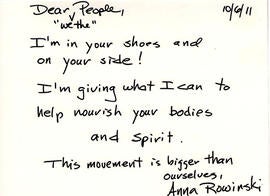 Dear, People, 10/6/11
"we the"
I'm in your shoes and
on your side!
I'm giving what I can to
help nourish your bodies
and spirit.
This movement is bigger than
ourselves,
Anna Rowinski